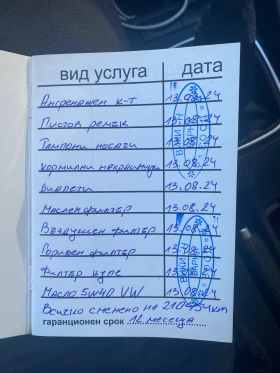 вид услуга дата
Ангренажен к-т 13.08.24
Пистов ремък 13.08.24
Тампони носачи 13.08.24
Кормилни накрайници 13.08.24
Биалети 13.08.24
Маслен филтър 13.08.24
Въздушен филтър 13.08.24
Горивен филтър 13.08.24
Филтър купе 13.08.24
Масло 5W40 VW 13.08.24
Всичко сменено на
гаранционен срок 12 месеца